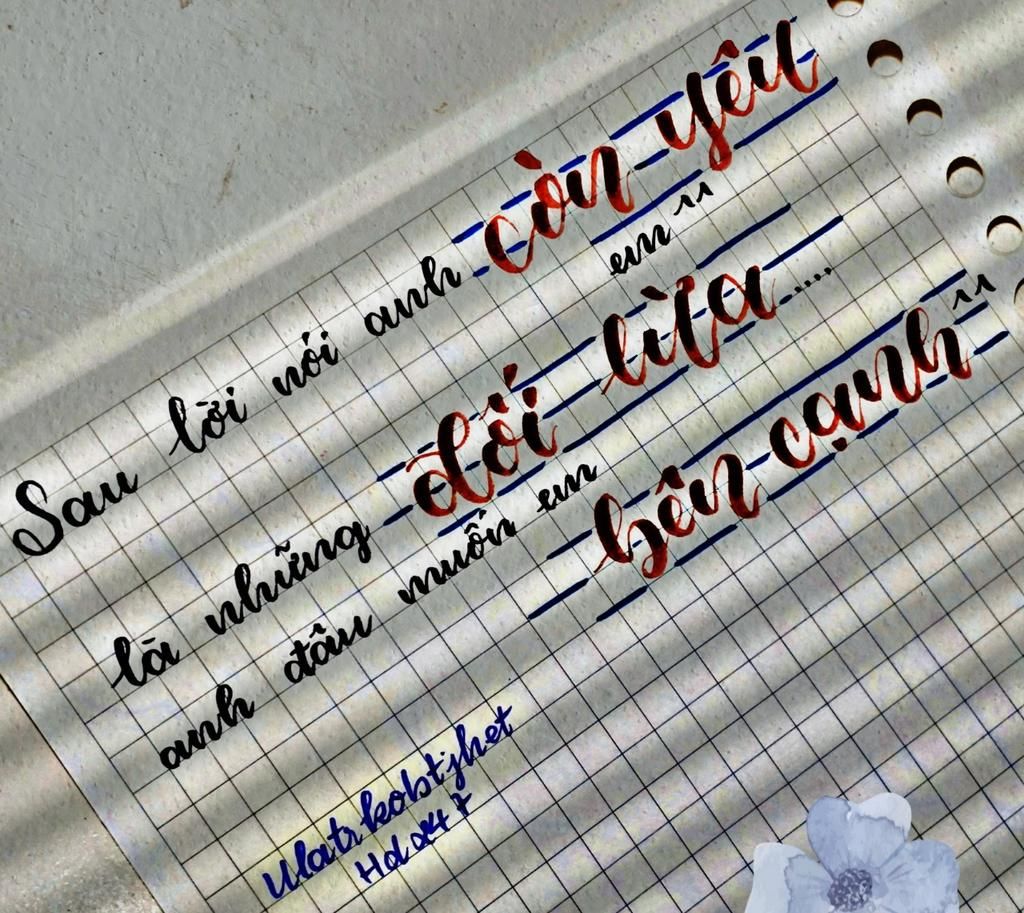 Sau lời nói anh còn yêu em ^^
là những dối lừa....
anh đâu muốn em bên cạnh ^^
Ulatr kobtjhet
Hd